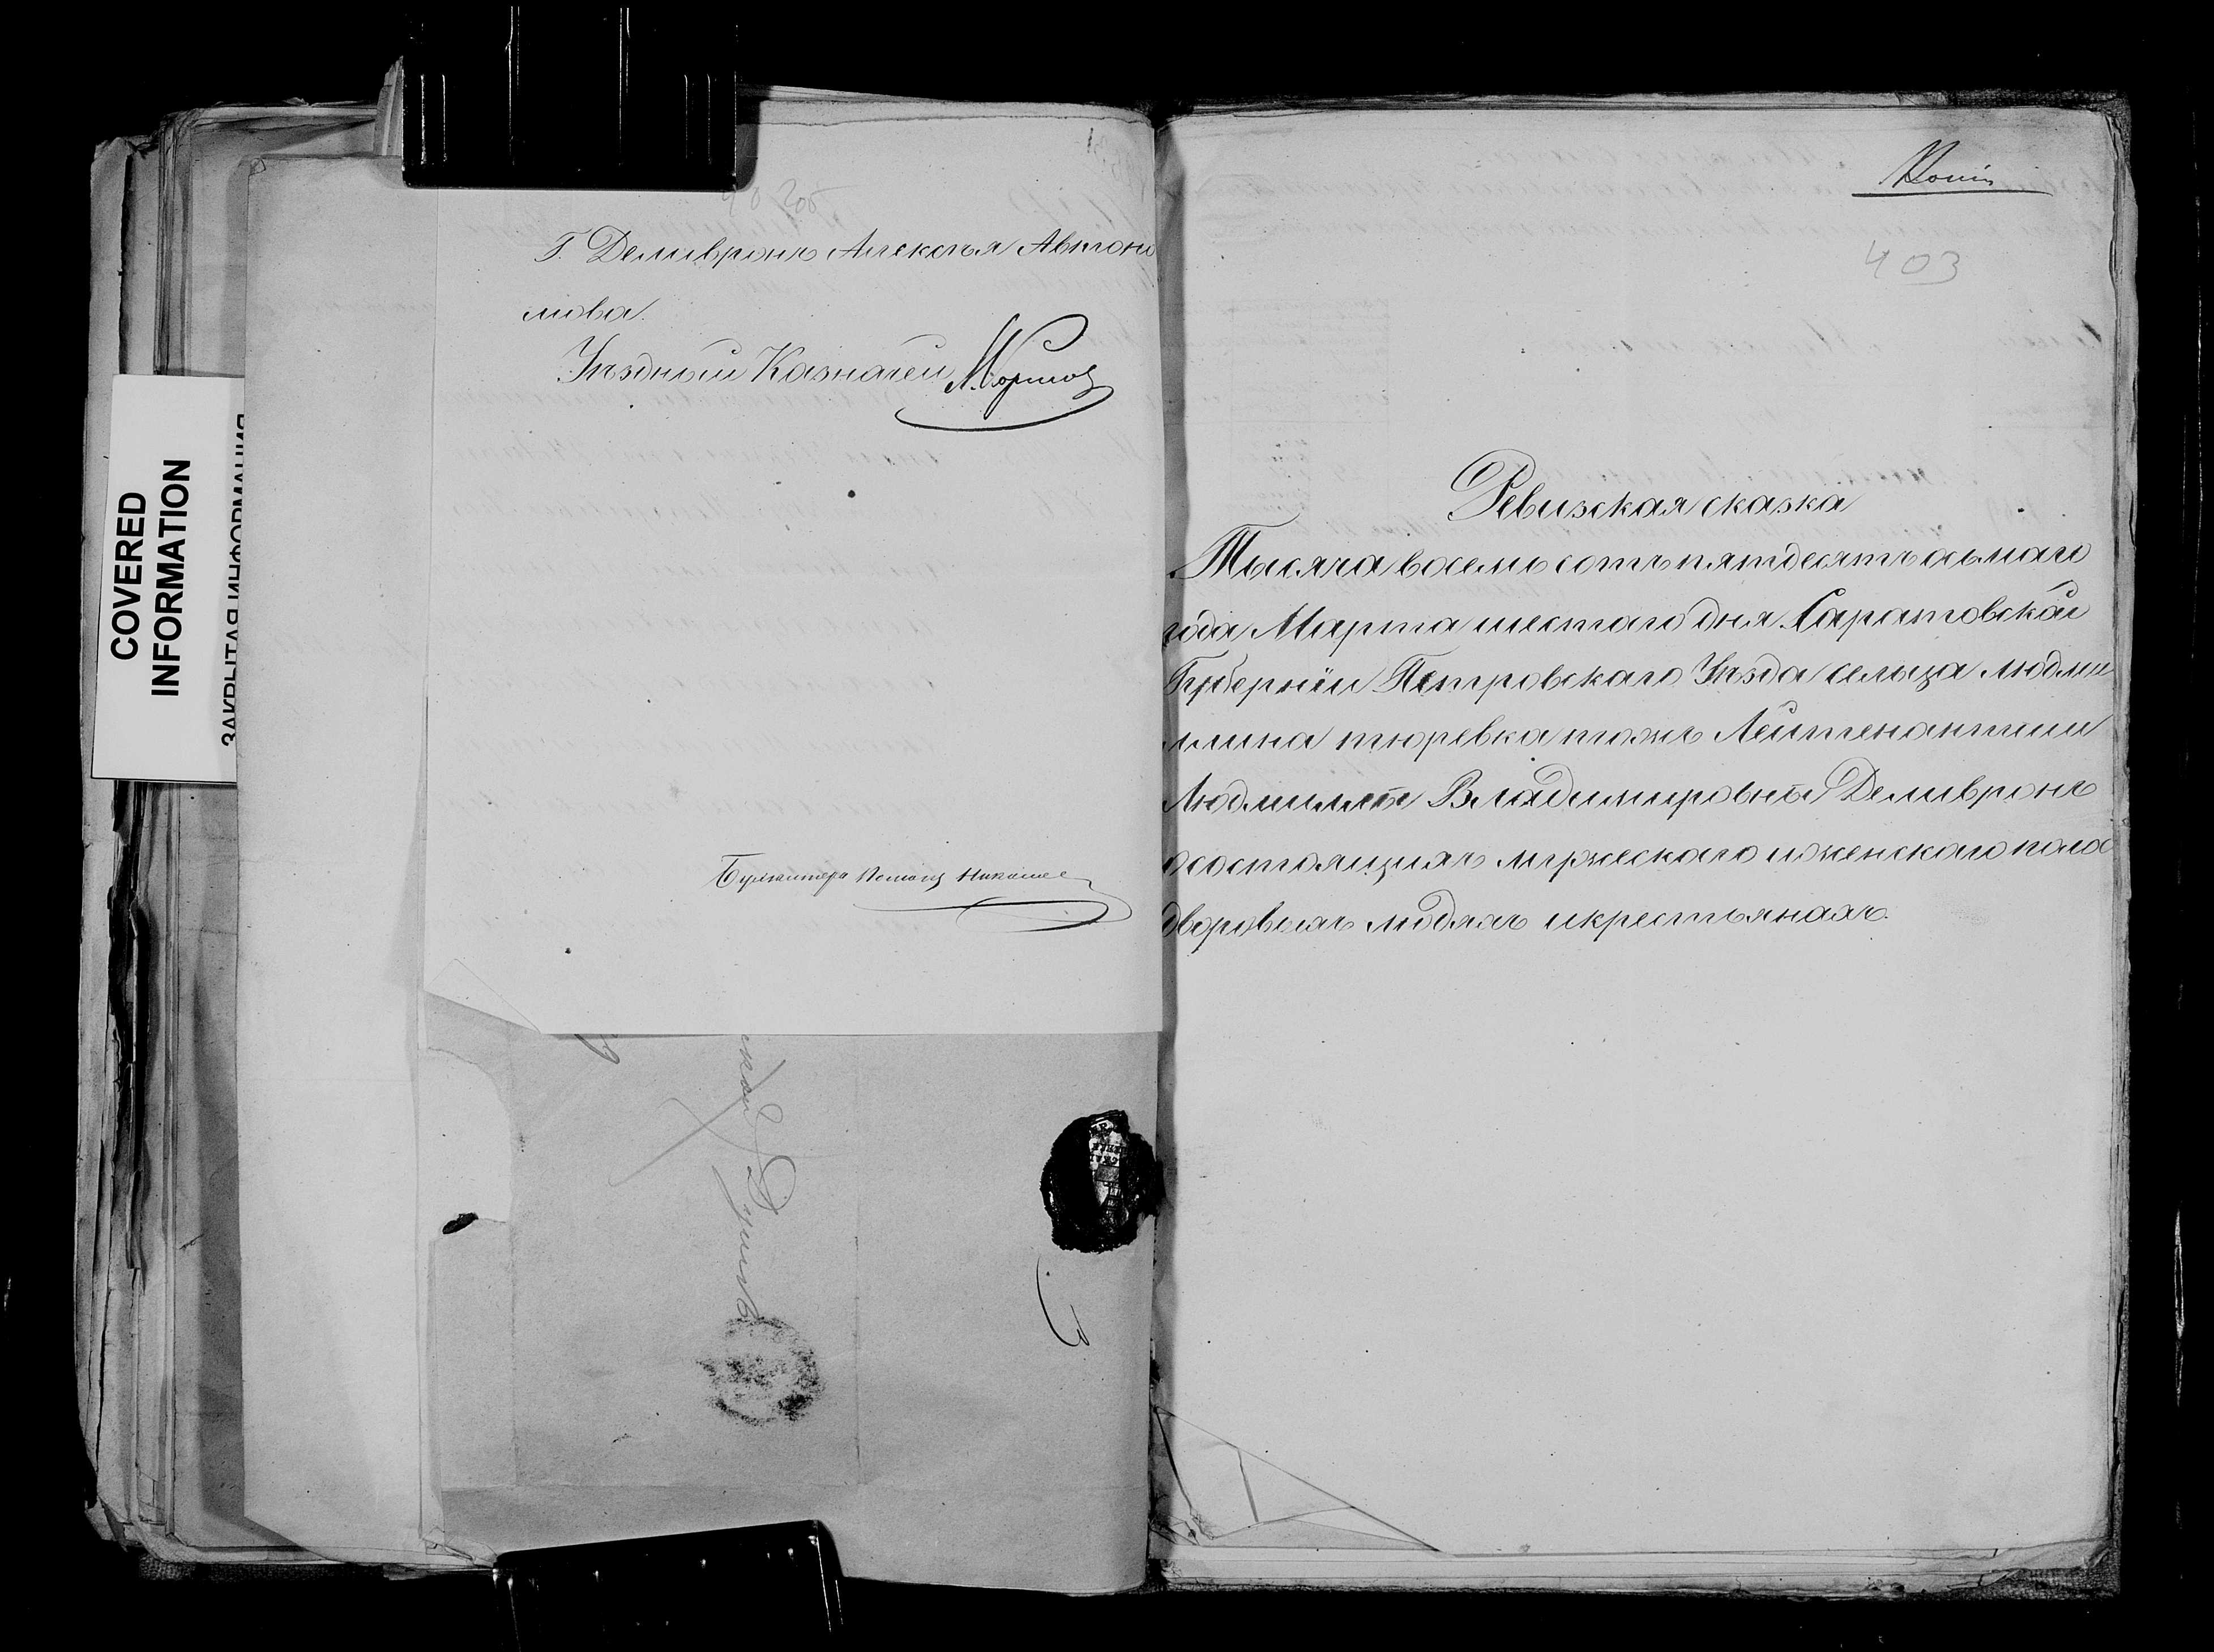 COVERED
INFORMATION
ЗАКРЫТАЯ ИНФОРМАЦИЯ
Г. Деливронъ Алексѣя Автоно
мова.
Уѣздный Казначей
Бухгалтера
Копія
403
Ревизская сказка
Тысяча восемь сотъ пятдесятъ осьмаго
года Марта шестаго дня Саратовской
Губерніи Петровскаго Уѣзда сельца Людми
лина тюревка тожъ Лейтенантши
Людмилы Владимировны Деливронъ
о состоящихъ мужескаго и женскаго пола
дворовыхъ людяхъ и крестьянахъ.